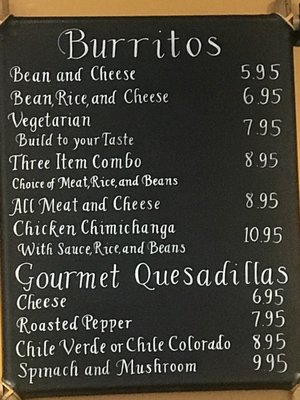 Burritos
Bean and Cheese 5.95
Bean, Rice, and Cheese 6.95
Vegetarian 7.95
Build to your Taste
Three Item Combo 8.95
Choice of Meat, Rice, and Beans
All Meat and Cheese 8.95
Chicken Chimichanga 10.95
With Sauce, Rice, and Beans
Gourmet Quesadillas
Cheese 6.95
Roasted Pepper 7.95
Chile Verde or Chile Colorado 8.95
Spinach and Mushroom 9.95